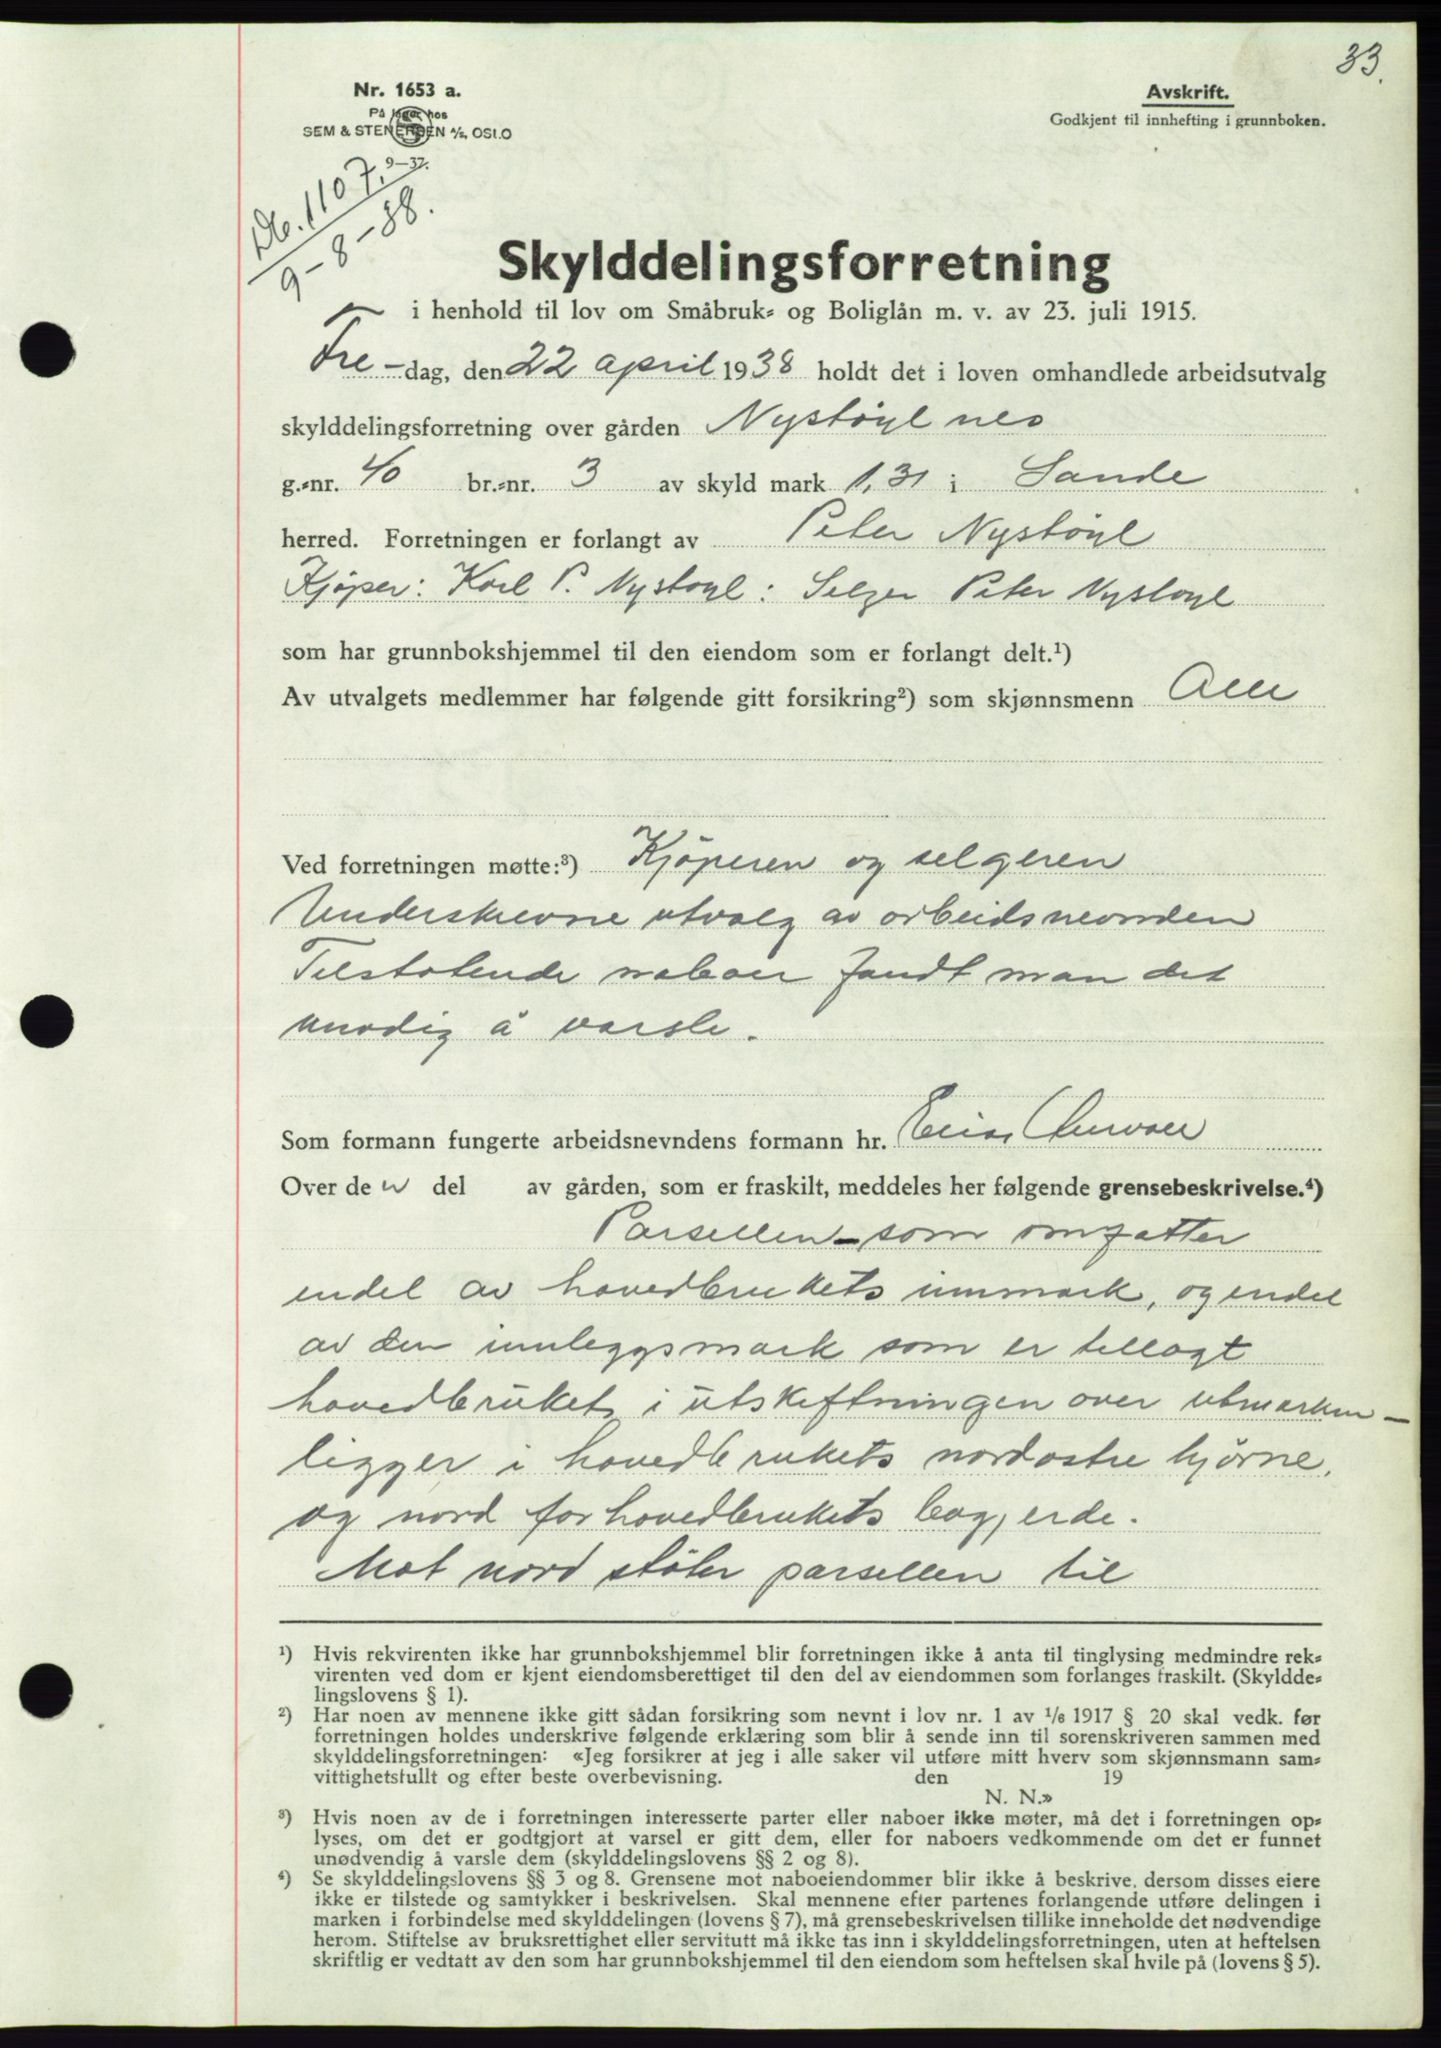 33.
Nr. 1653 a.
På lager hos
SEM & STENERSEN A/S, OSLO
9—37.
Avskrift.
Godkjent til innhefting i grunnboken.
1107.
9-8-38.
Skylddelingsforretning
i henhold til lov om Småbruk= og Boliglån m. v. av 23. juli 1915.
Fre-dag, den 22 april 1938 holdt det i loven omhandlede arbeidsutvalg
skylddelingsforretning over gården Nystøyl
g.=nr. 40 br.=nr. 3 av skyld mark 1,31 i Sande
herred. Forretningen er forlangt av Peter Nystøyl
Kjøper: Karl P. Nystøyl: Selger Peter Nystøyl
som har grunnbokshjemmel til den eiendom som er forlangt delt.¹)
Av utvalgets medlemmer har følgende gitt forsikring²) som skjønnsmenn Alle
Ved forretningen møtte:³) Kjøperen og selgeren
Underskrevne utvalg av arbeidsnevnden
Tilstøtende naboer fandt man det
unødig å varsle.
Som formann fungerte arbeidsnevndens formann hr.
Over den del av gården, som er fraskilt, meddeles her følgende grensebeskrivelse.⁴)
Parsellen – som omfatter
endel av hovedbrukets innmark, og endel
av den innleggsmark som er tillagt
hovedbruket i utskiftningen over utmarken –
ligger i hovedbrukets nordøstre hjørne,
og nord for hovedbrukets bøgjerde.
Mot nord støter parsellen til
¹) Hvis rekvirenten ikke har grunnbokshjemmel blir forretningen ikke å anta til tinglysing medmindre rek=
virenten ved dom er kjent eiendomsberettiget til den del av eiendommen som forlanges fraskilt. (Skyldde=
lingslovens § 1).
²) Har noen av mennene ikke gitt sådan forsikring som nevnt i lov nr. 1 av 1/6 1917 § 20 skal vedk. før
forretningen holdes underskrive følgende erklæring som blir å sende inn til sorenskriveren sammen med
skylddelingsforretningen: «Jeg forsikrer at jeg i alle saker vil utføre mitt hverv som skjønnsmann sam=
vittighetsfullt og efter beste overbevisning. den 19
N. N.»
³) Hvis noen av de i forretningen interesserte parter eller naboer ikke møter, må det i forretningen op=
lyses, om det er godtgjort at varsel er gitt dem, eller for naboers vedkommende om det er funnet
unødvendig å varsle dem (skylddelingslovens §§ 2 og 8).
⁴) Se skylddelingslovens §§ 3 og 8. Grensene mot naboeiendommer blir ikke å beskrive, dersom disses eiere
ikke er tilstede og samtykker i beskrivelsen. Skal mennene efter partenes forlangende utføre delingen i
marken i forbindelse med skylddelingen (lovens § 7), må grensebeskrivelsen tillike inneholde det nødvendige
herom. Stiftelse av bruksrettighet eller servitutt må ikke tas inn i skylddelingsforretningen, uten at heftelsen
skriftlig er vedtatt av den som har grunnbokshjemmel til den eiendom som heftelsen skal hvile på (lovens § 5).